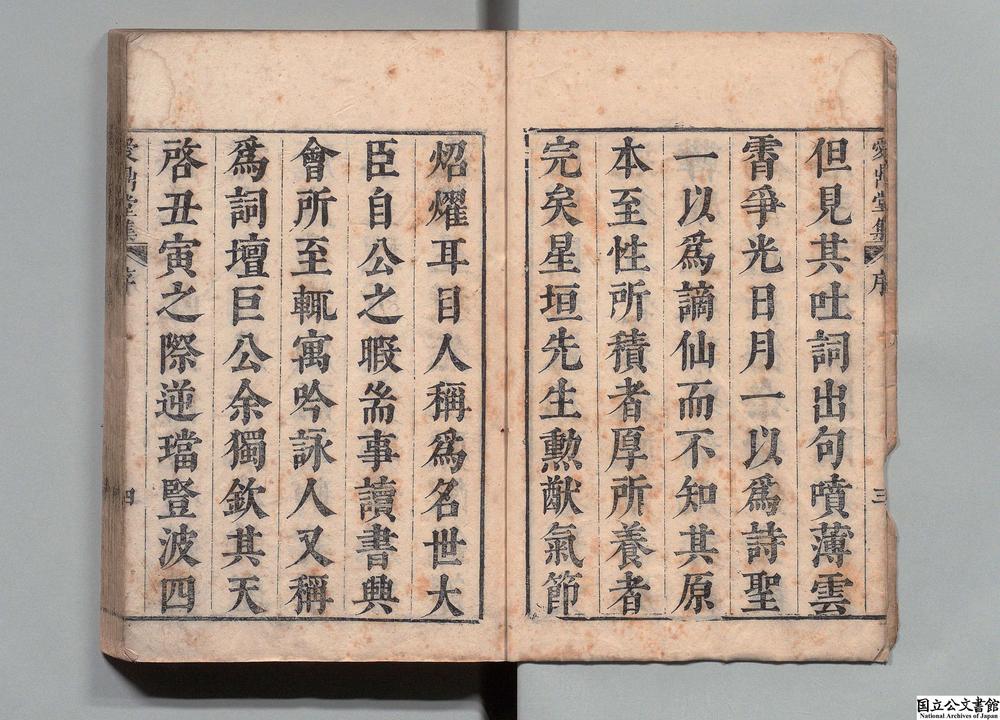 但見其吐詞出句噴薄雲
霄爭光日月一以爲詩聖
一以爲謫仙而不知其原
本至性所積者厚所養者
完矣星垣先生勲猷氣節
炤燿耳目人稱爲名世大
臣自公之暇耑事讀書興
會所至輒寓吟詠人又稱
爲詞壇巨公余獨欽其天
啓丑寅之際逆璫豎波四
愛鼎堂集
序
三
愛鼎堂集
序
四
国立公文書館
National Archives of Japan